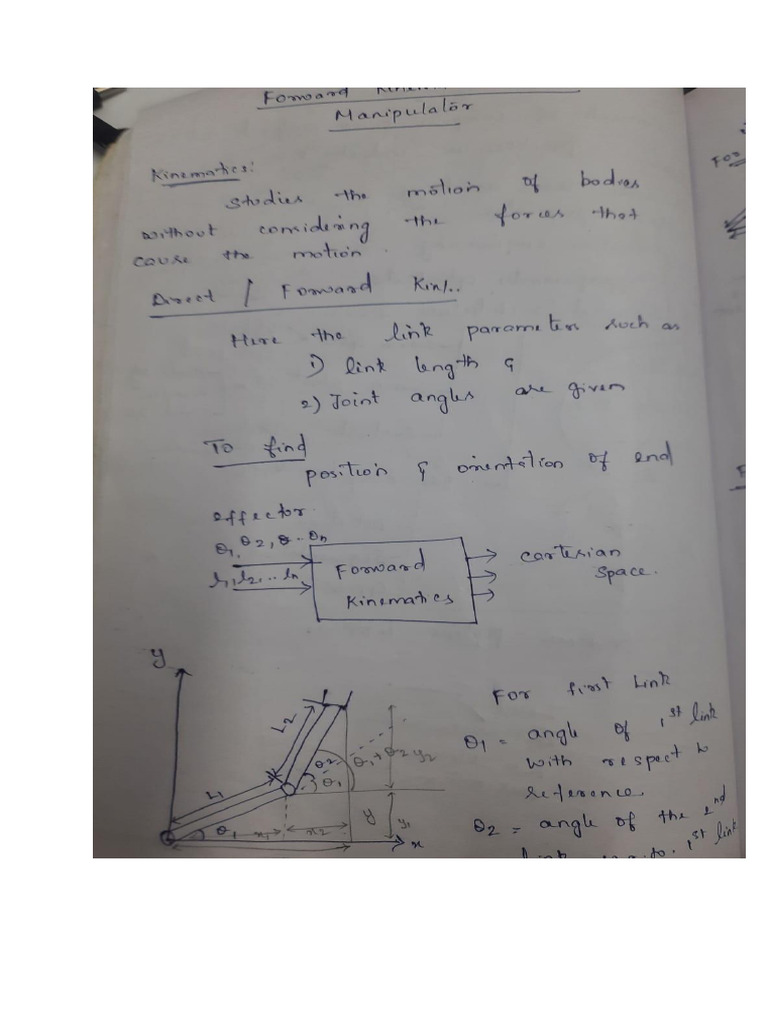 Forward
Manipulator
Kinematics:
Studies the motion of bodies
without considering the forces that
cause the motion.
Direct / Forward Kin/..
Here the link parameters such as
1) link length &
2) Joint angles are given
To find
position & orientation of end
effector.
θ1, θ2, θ.. θn
l1, l2, .. ln,
Forward
Kinematics
cartesian
space.
y
L2
L1
θ2
θ1
θ1+θ2
y2
θ1
x1
x2
y
y1
x
For first Link
θ1 = angle of 1st link
with respect to
reference
θ2 = angle of the 2nd
1st link
For